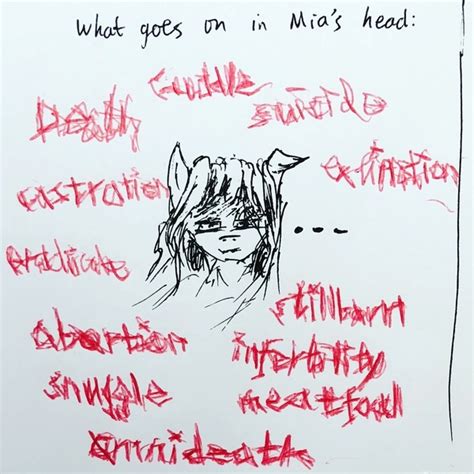 What goes on in Mia's head:
cuddle
Death suicide
castration
...
eradicate
stillborn
abortion infertility
snuggle
omnideath